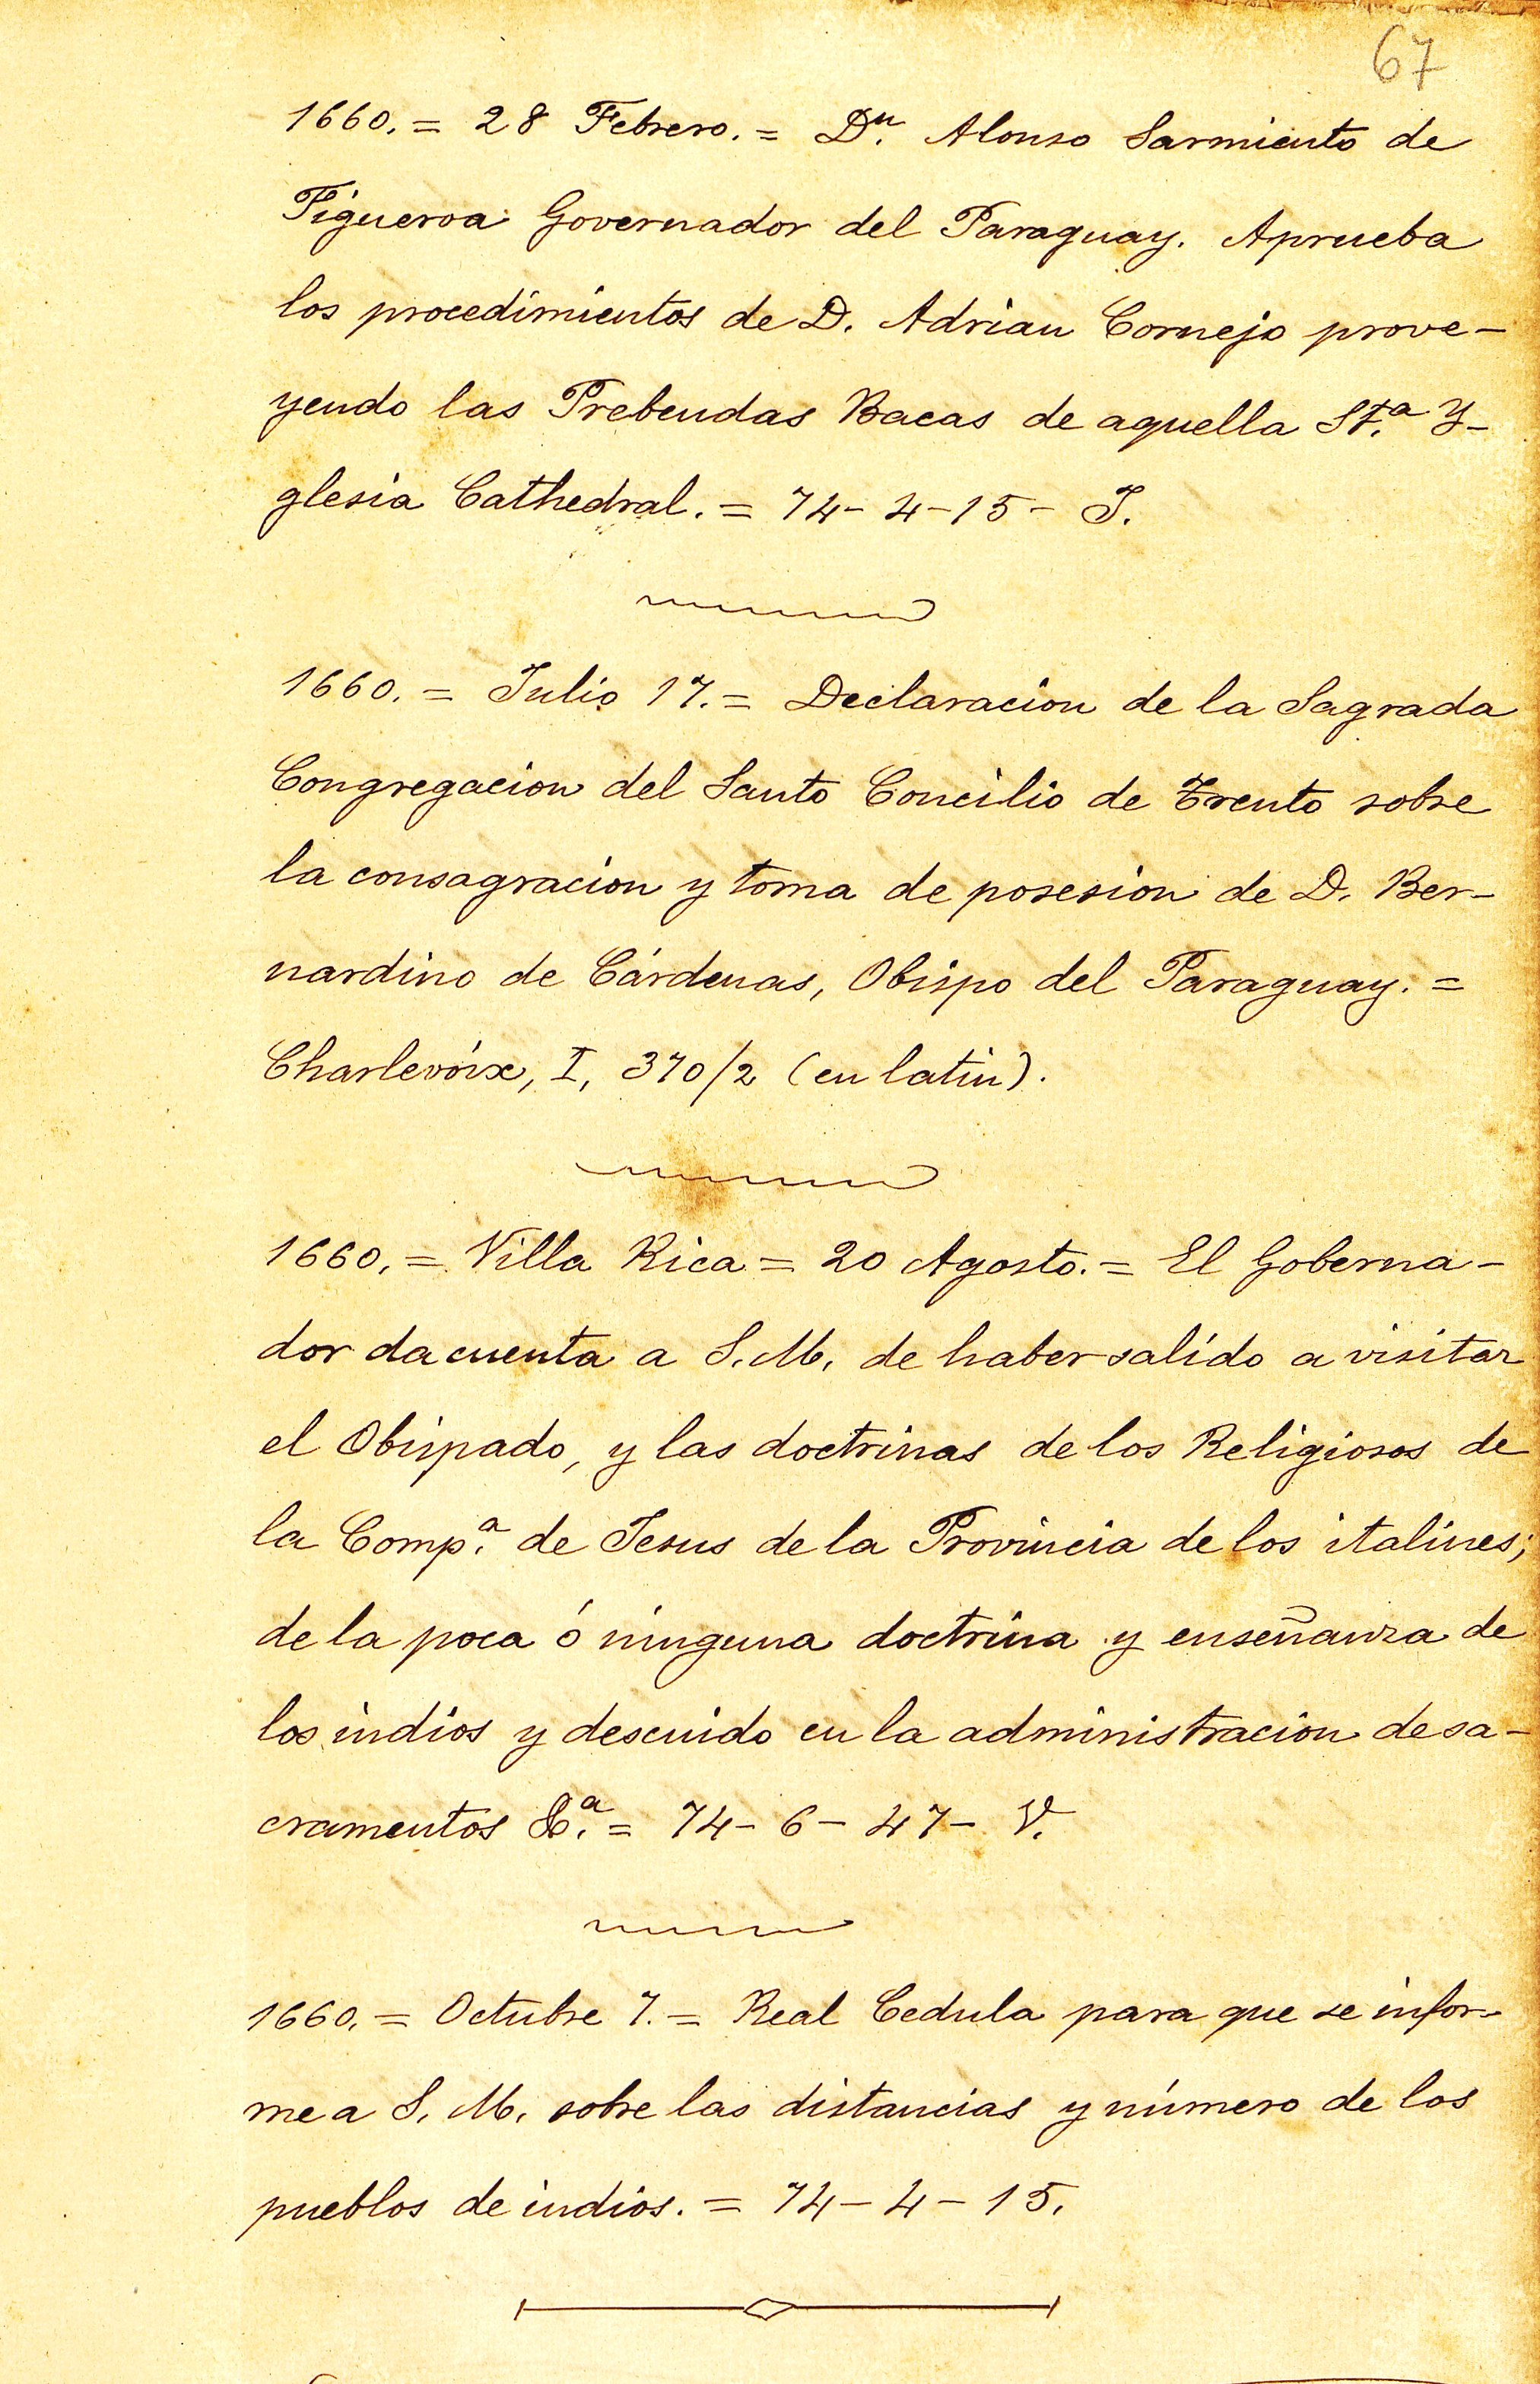 67
1660. = 28 Febrero. = Dn. Alonso Sarmiento de
Figueroa Governador del Paraguay. Aprueba
los procedimientos de D. Adrian Cornejo prove-
yendo las Prebendas Bacas de aquella Sta. Y-
glesia Cathedral. = 74-4-15- J.
1660. = Julio 17. = Declaracion de la Sagrada
Congregacion del Santo Concilio de Trento sobre
la consagracion y toma de posesion de D. Ber-
nardino de Cárdenas, Obispo del Paraguay. =
Charlevoix, I, 370/2 (en latin).
1660. = Villa Rica = 20 Agosto. = El Goberna-
dor da cuenta a S. M. de haber salido a visitar
el Obispado, y las doctrinas de los Religiosos de
la Compa. de Jesus de la Provincia de los italines;
de la poca ó ninguna doctrina y enseñanza de
los indios y descuido en la administracion de sa-
cramentos &a. = 74-6-47- V.
1660. = Octubre 7. = Real Cedula para que se infor-
me a S. M. sobre las distancias y número de los
pueblos de indios. = 74-4-15.